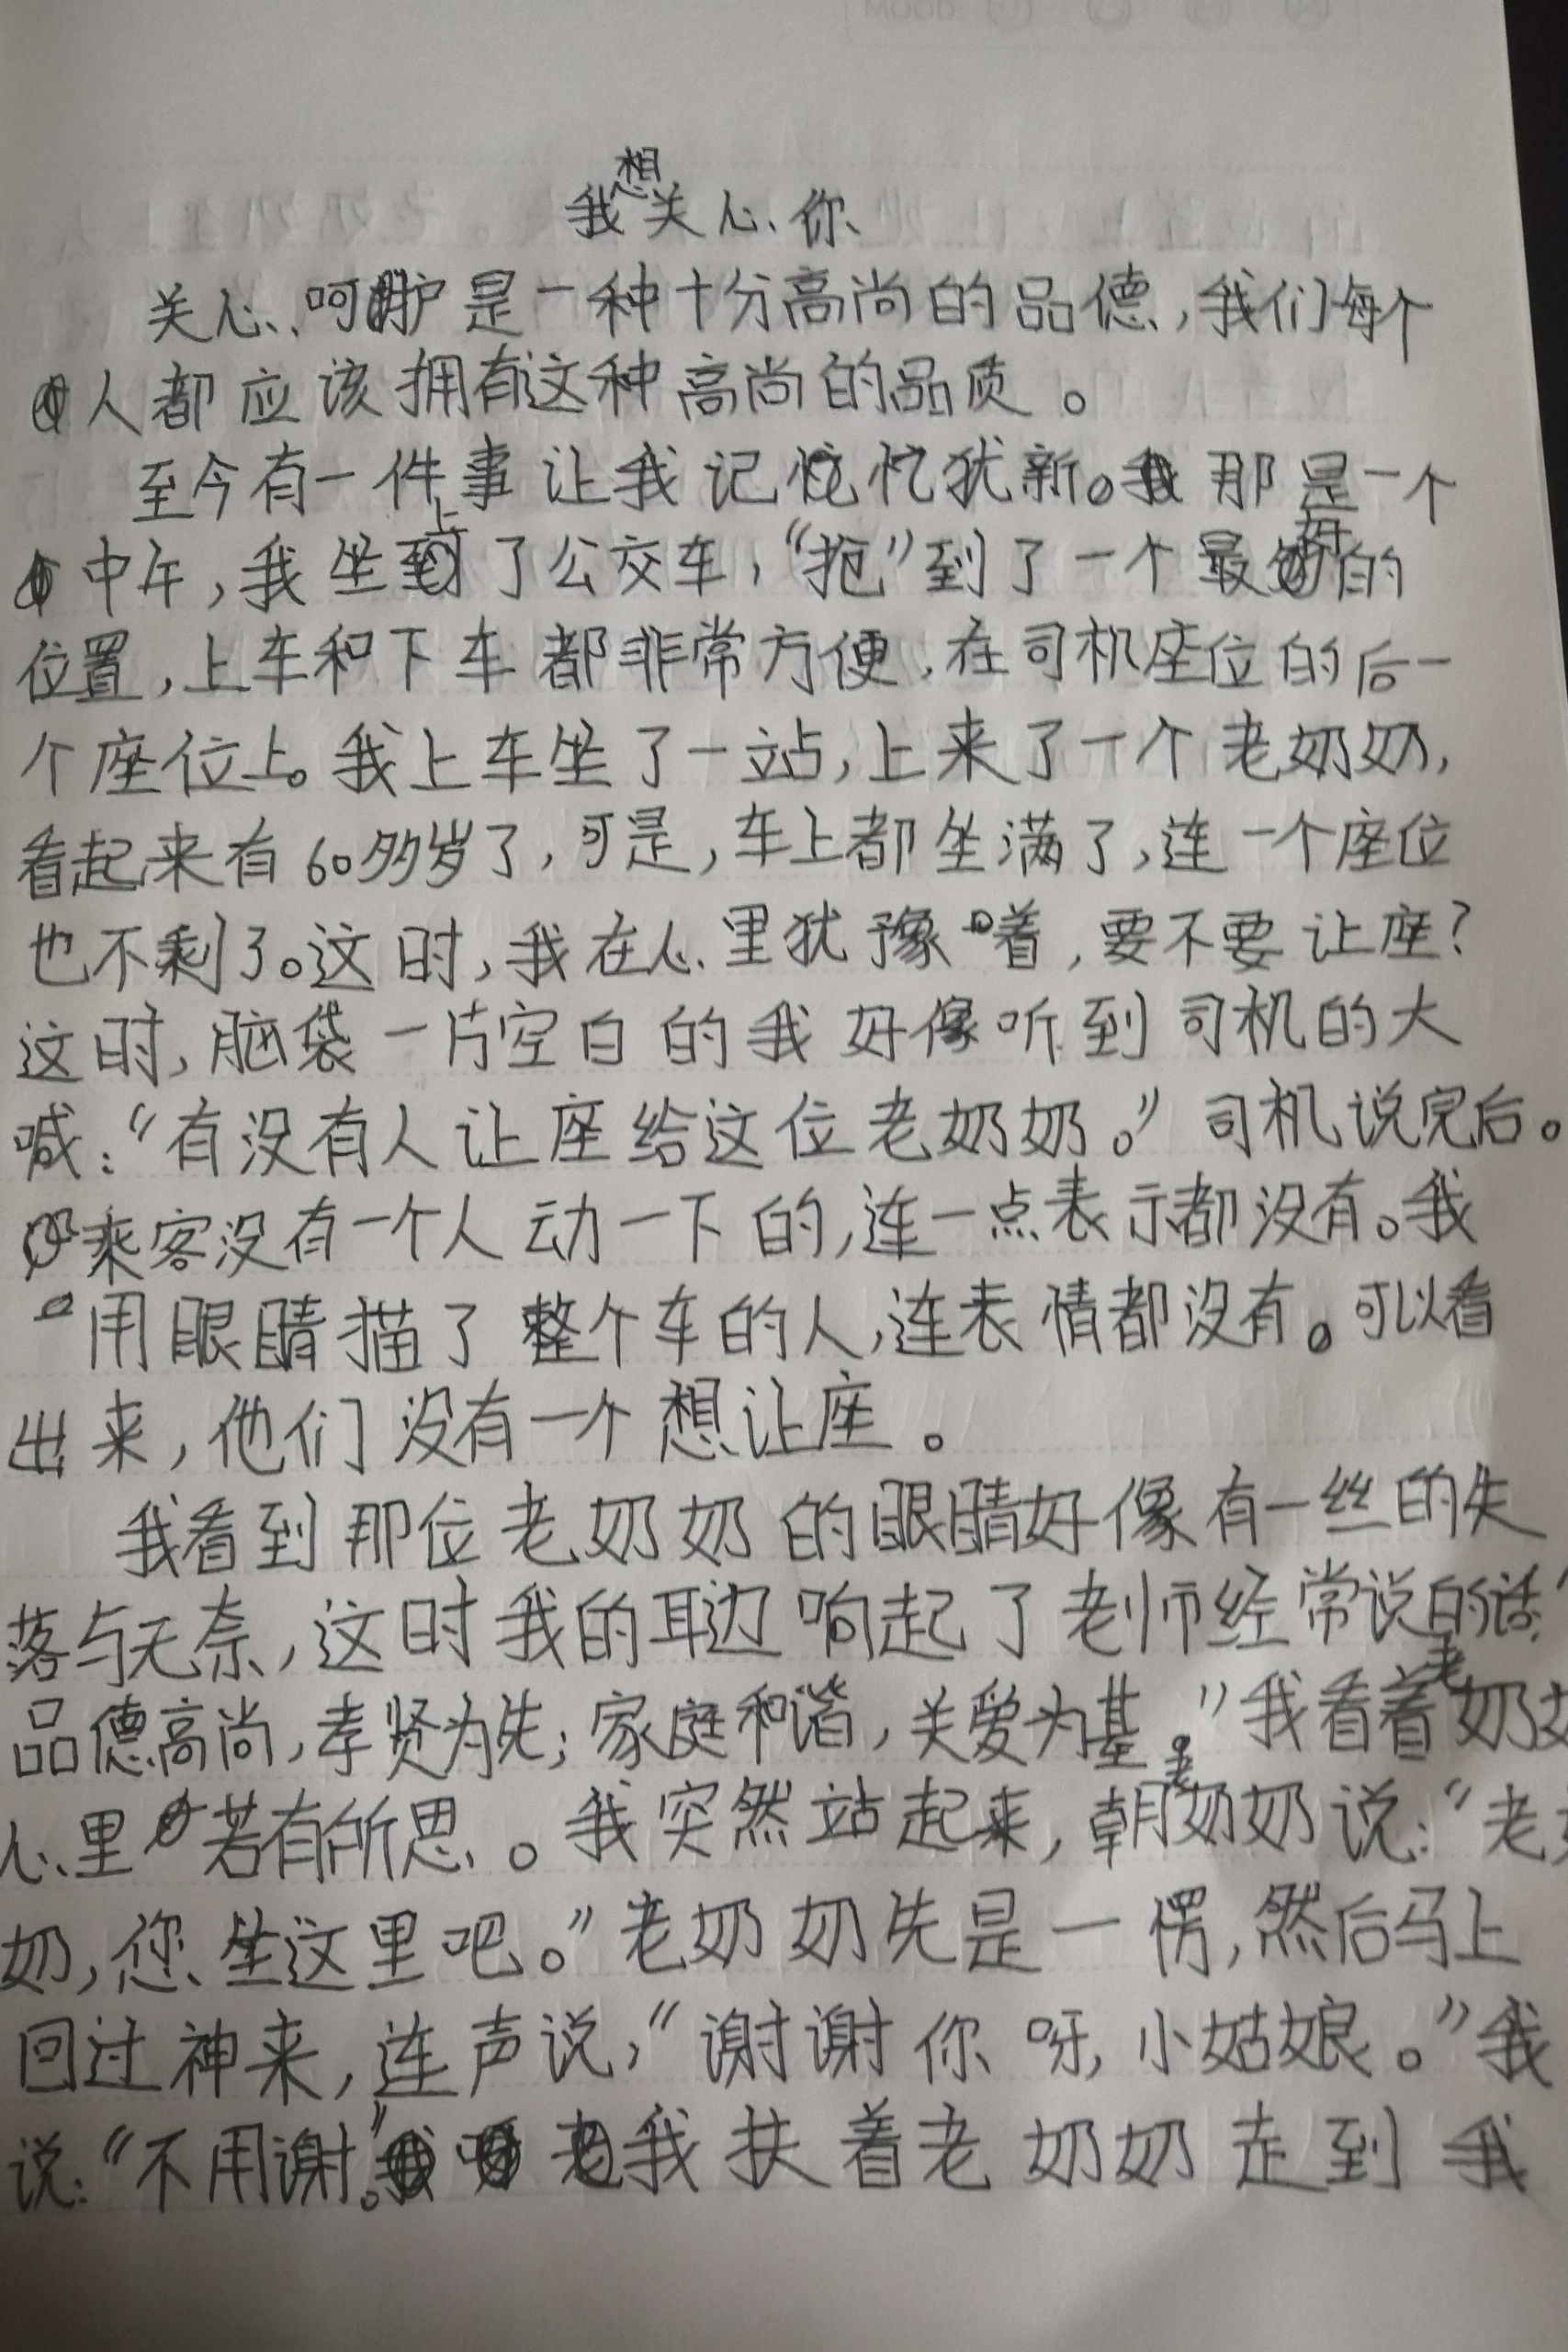 MOOD:
我想关心你
关心、呵护是一种十分高尚的品德，我们每个
人都应该拥有这种高尚的品质。
至今有一件事让我记忆犹新。那是一个
中午，我坐上了公交车，“抱”到了一个最好的
位置，上车和下车都非常方便，在司机座位的后一
个座位上。我上车坐了一站，上来了一个老奶奶，
看起来有60多岁了，可是，车上都坐满了，连一个座位
也不剩了。这时，我在心里犹豫着，要不要让座？
这时，脑袋一片空白的我好像听到司机的大
喊：“有没有人让座给这位老奶奶。”司机说完后。
乘客没有一个人动一下的，连一点表示都没有。我
用眼睛描了整个车的人，连表情都没有。可以看
出来，他们没有一个想让座。
我看到那位老奶奶的眼睛好像有一丝的失
落与无奈，这时我的耳边响起了老师经常说的话“
品德高尚，孝贤为先；家庭和谐，关爱为基。”我看着老奶奶
心里若有所思。我突然站起来，朝老奶奶说：“老奶
奶，您坐这里吧。”老奶奶先是一愣，然后马上
回过神来，连声说，“谢谢你呀，小姑娘。”我
说：“不用谢。”我扶着老奶奶走到我